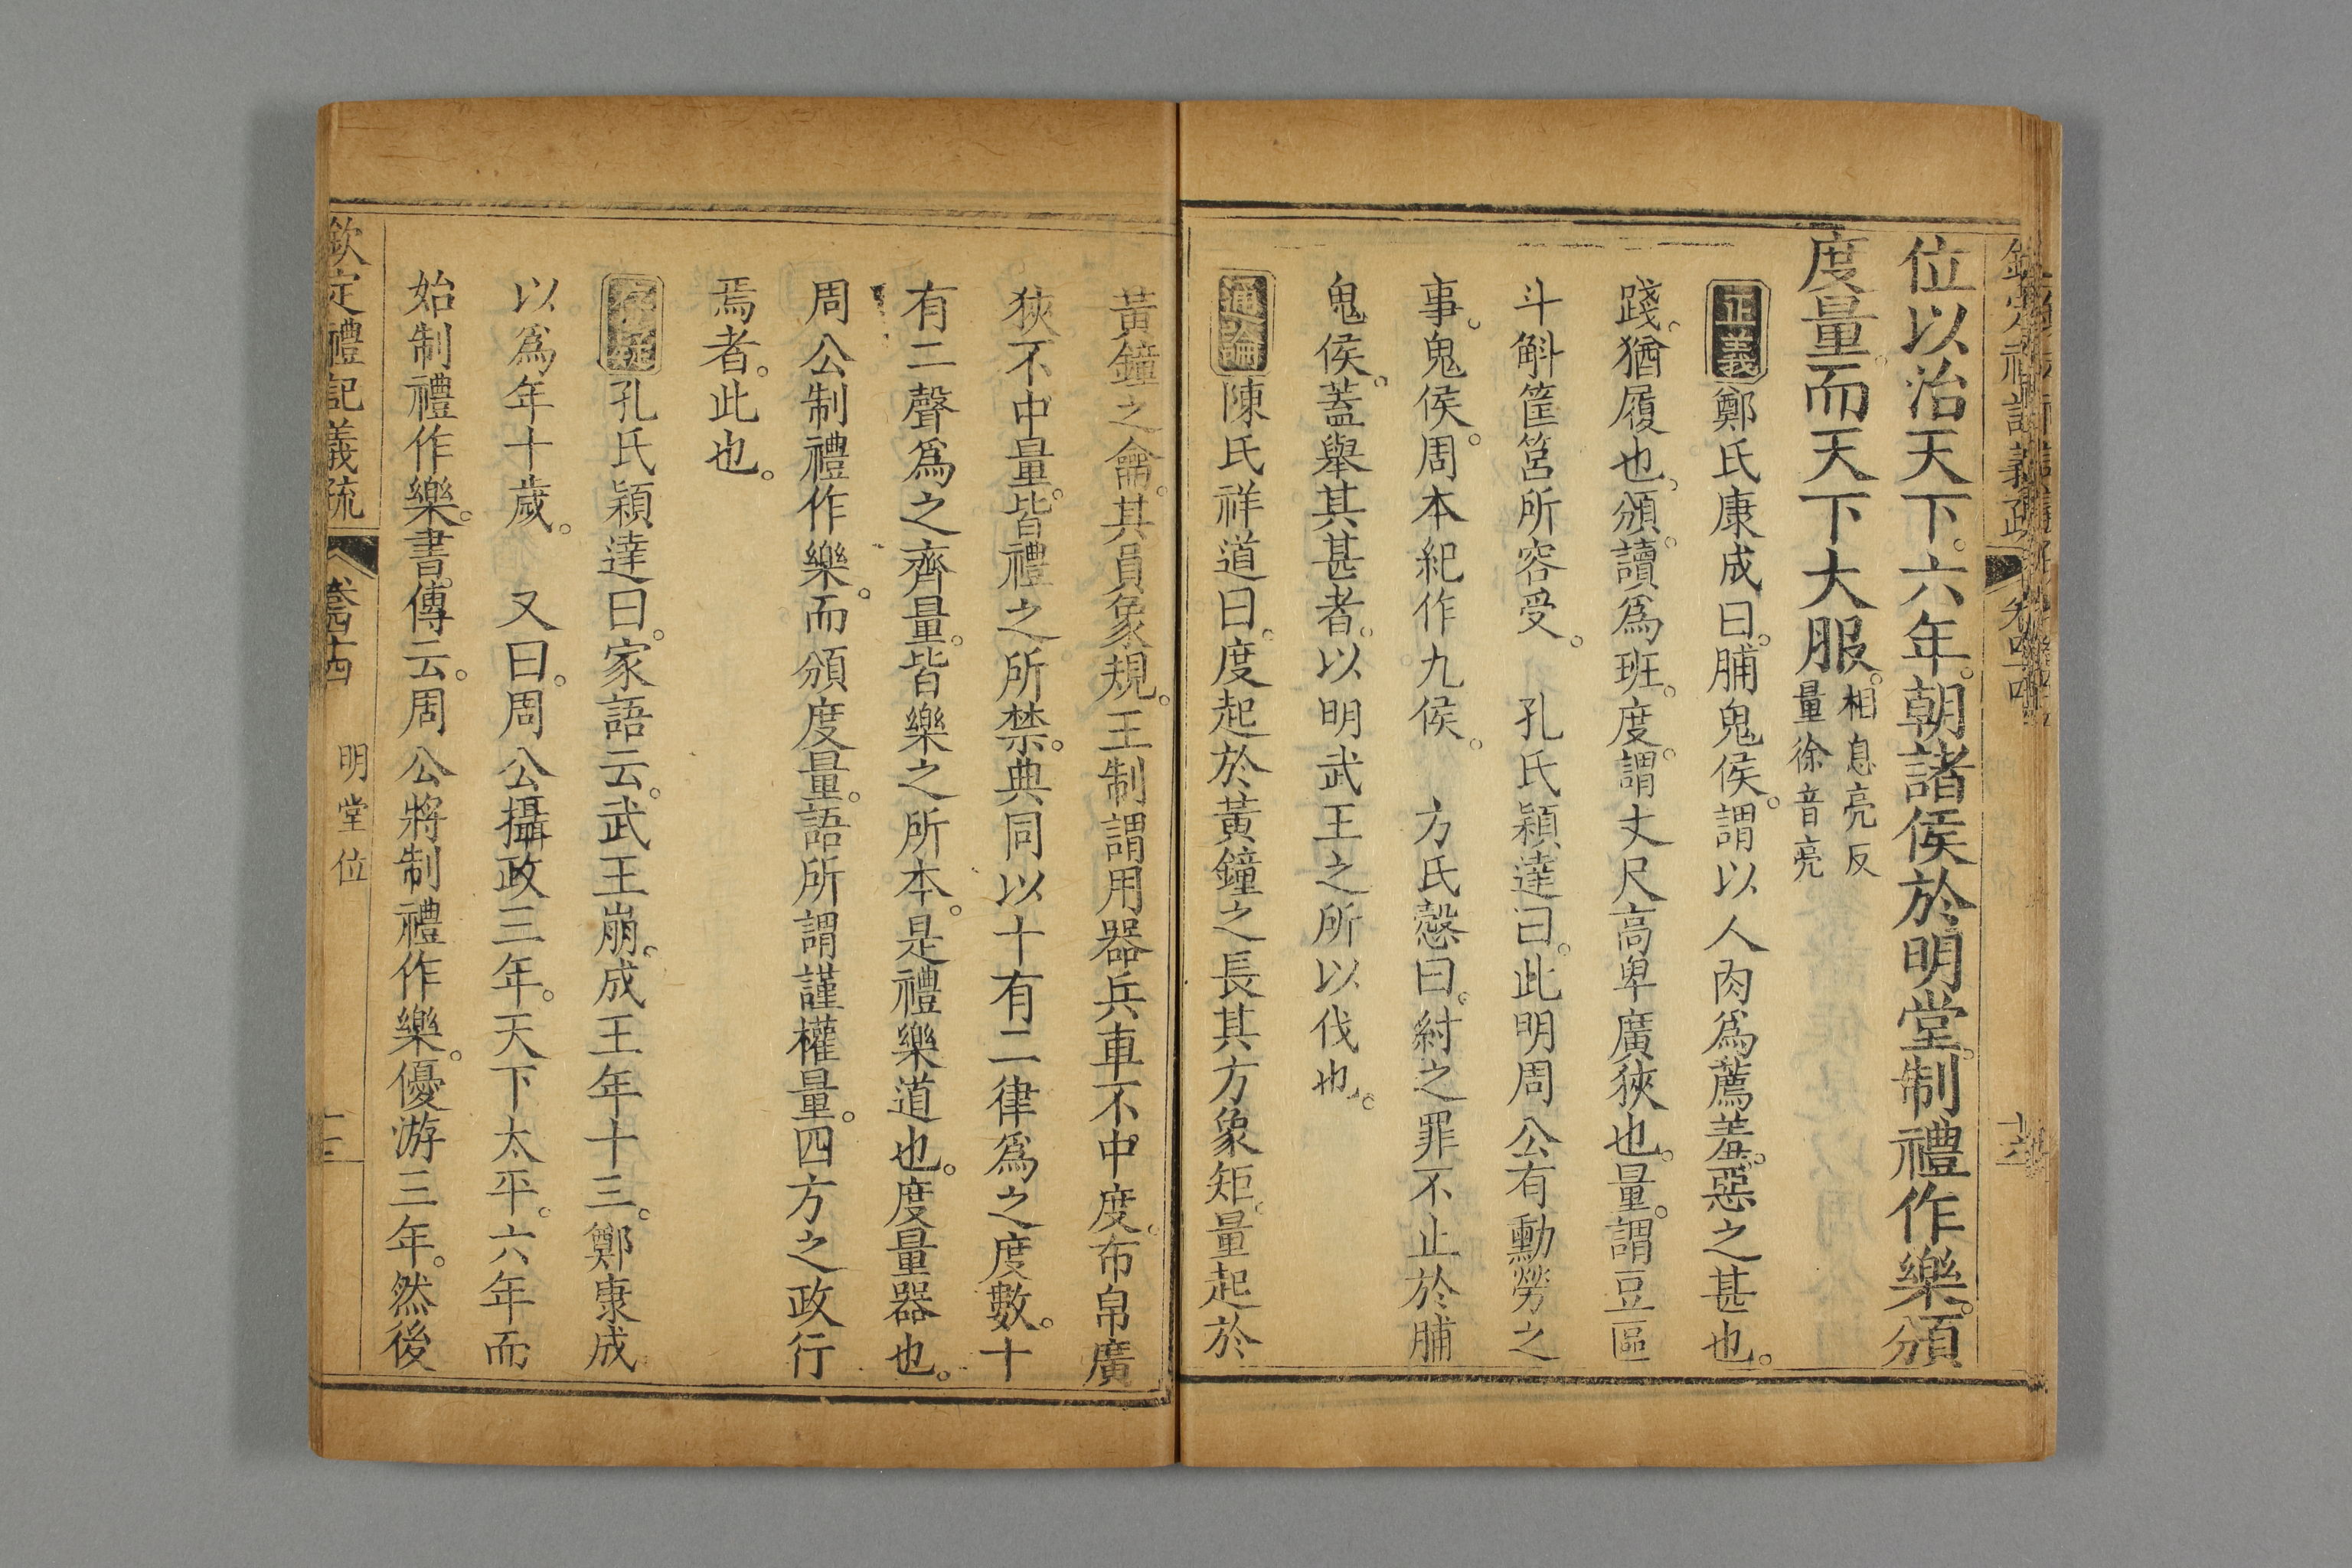 位以治天下。六年。朝諸侯於明堂。制禮作樂。頒
度量。而天下大服。相息亮反
量徐音亮
正義鄭氏康成曰。脯鬼侯。謂以人肉爲薦羞。惡之甚也。
踐。猶履也。頒。讀爲班。度。謂丈尺高卑廣狹也。量。謂豆區
斗斛筐筥所容受。 孔氏穎達曰。此明周公有勳勞之
事。鬼侯。周本紀作九侯。 方氏慤曰。紂之罪不止於脯
鬼侯。蓋舉其甚者。以明武王之所以伐也。
通論陳氏祥道曰。度起於黃鐘之長其方象矩。量起於
黃鐘之龠。其員象規。王制謂用器兵車不中度。布帛廣
狹不中量。皆禮之所禁。典同以十有二律爲之度數。十
有二聲爲之齊量。皆樂之所本。是禮樂道也。度量器也。
周公制禮作樂。而頒度量。語所謂謹權量。四方之政行
焉者。此也。
存疑孔氏穎達曰。家語云。武王崩。成王年十三。鄭康成
以爲年十歲。 又曰。周公攝政三年。天下太平。六年而
始制禮作樂。書傳云。周公將制禮作樂。優游三年。然後
欽定禮記義疏
卷四十四 明堂位